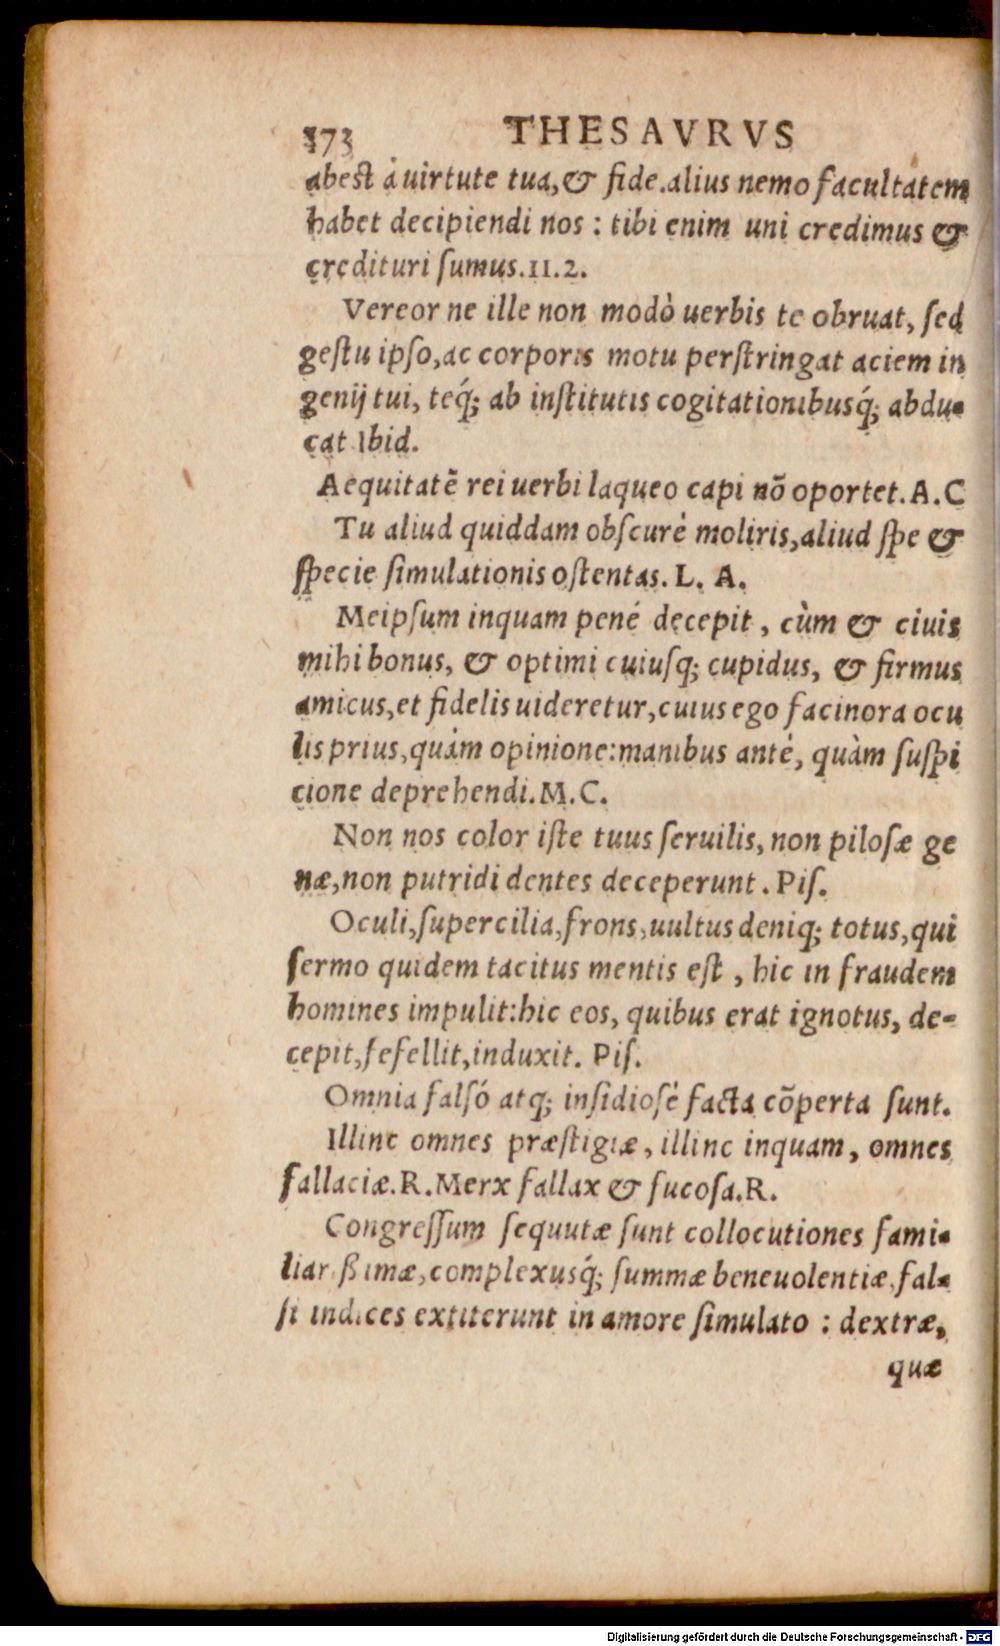 373 THESAVRVS
abest à uirtute tua, & fide. alius nemo facultatem
habet decipiendi nos : tibi enim uni credimus &
credituri ſumus. 11. 2.
Vereor ne ille non modò uerbis te obruat, ſed
geſtu ipſo, ac corporis motu perſtringat aciem in
genij tui, teq́; ab inſtitutis cogitationibusq́; abdu-
cat Ibid.
Aequitatē rei uerbi laqueo capi nō oportet. A. C
Tu aliud quiddam obſcurè moliris, aliud ſpe &
ſpecie ſimulationis oſtentas. L. A.
Meipſum inquam pené decepit, cùm & ciuis
mihi bonus, & optimi cuiuſq; cupidus, & firmus
amicus, et fidelis uideretur, cuius ego facinora ocu
lis prius, quàm opinione: manibus anté, quàm ſuſpi
cione deprehendi. M. C.
Non nos color iſte tuus ſeruilis, non piloſæ ge
næ, non putridi dentes deceperunt. Piſ.
Oculi, ſupercilia, frons, uultus deniq; totus, qui
ſermo quidem tacitus mentis eſt, hic in fraudem
homines impulit: hic eos, quibus erat ignotus, de-
cepit, fefellit, induxit. Piſ.
Omnia falſó atq; inſidioſè facta cōperta ſunt.
Illinc omnes præſtigiæ, illinc inquam, omnes
fallaciæ. R. Merx fallax & fucoſa. R.
Congreſſum ſequutæ ſunt collocutiones fami-
liarißimæ, complexusq́; ſummæ beneuolentiæ, fal-
ſi indices extiterunt in amore ſimulato : dextræ,
quæ
Digitalisierung gefördert durch die Deutsche Forschungsgemeinschaft - DFG